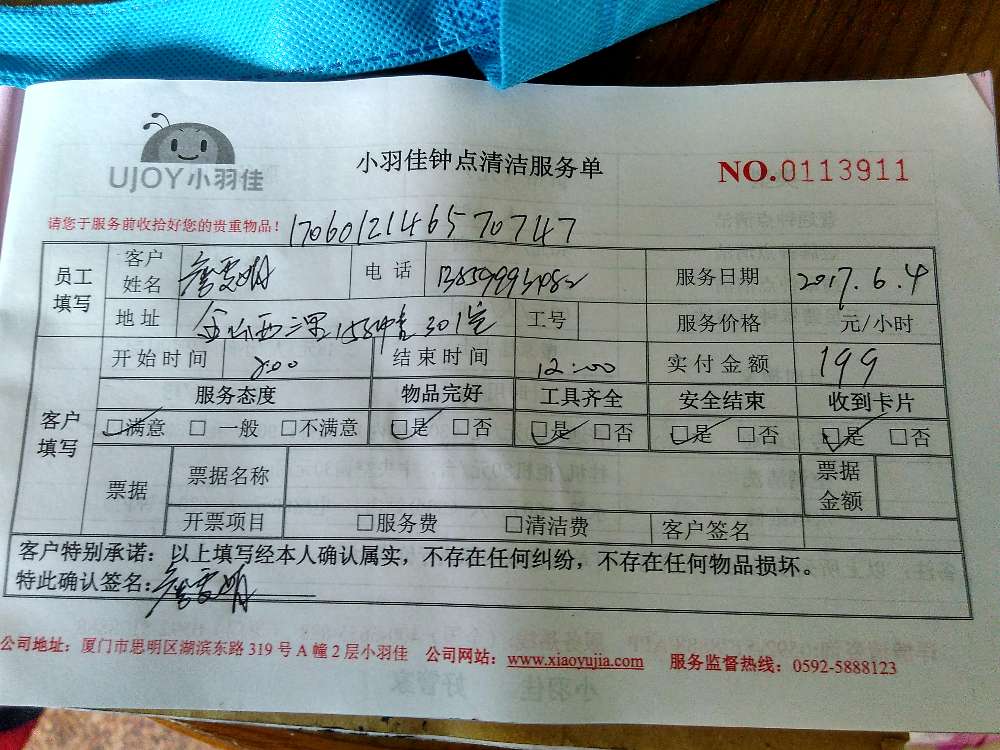 UJOY小羽佳
小羽佳钟点清洁服务单
NO.0113911
请您于服务前收拾好您的贵重物品！ 1706012146570747
员工填写 客户姓名 电话 服务日期 2017.6.4
地址 301室 工号 服务价格 元/小时
客户填写 开始时间 8:00 结束时间 12:00 实付金额 199
服务态度 物品完好 工具齐全 安全结束 收到卡片
☑满意 □一般 □不满意 ☑是 □否 ☑是 □否 ☑是 □否 ☑是 □否
票据 票据名称 票据金额
开票项目 □服务费 □清洁费 客户签名
客户特别承诺：以上填写经本人确认属实，不存在任何纠纷，不存在任何物品损坏。
特此确认签名：
公司地址：厦门市思明区湖滨东路319号A幢2层小羽佳 公司网站：www.xiaoyujia.com 服务监督热线：0592-5888123